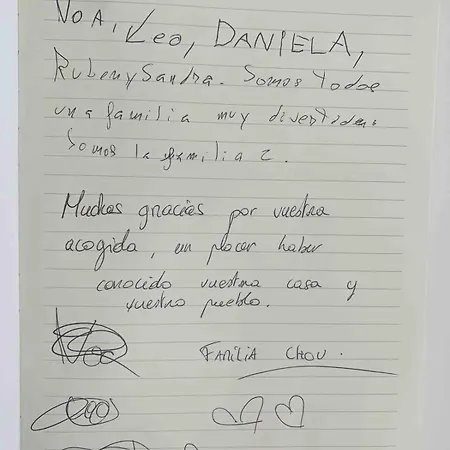 NOA, Leo, DANIELA,
Ruben y Sandra. Somos todos
una familia muy divertida.
Somos la familia 2.
Muchas gracias por vuestra
acogida, un placer haber
conocido vuestra casa y
vuestro pueblo.
Noa
FAMILIA CHOU.
Leo